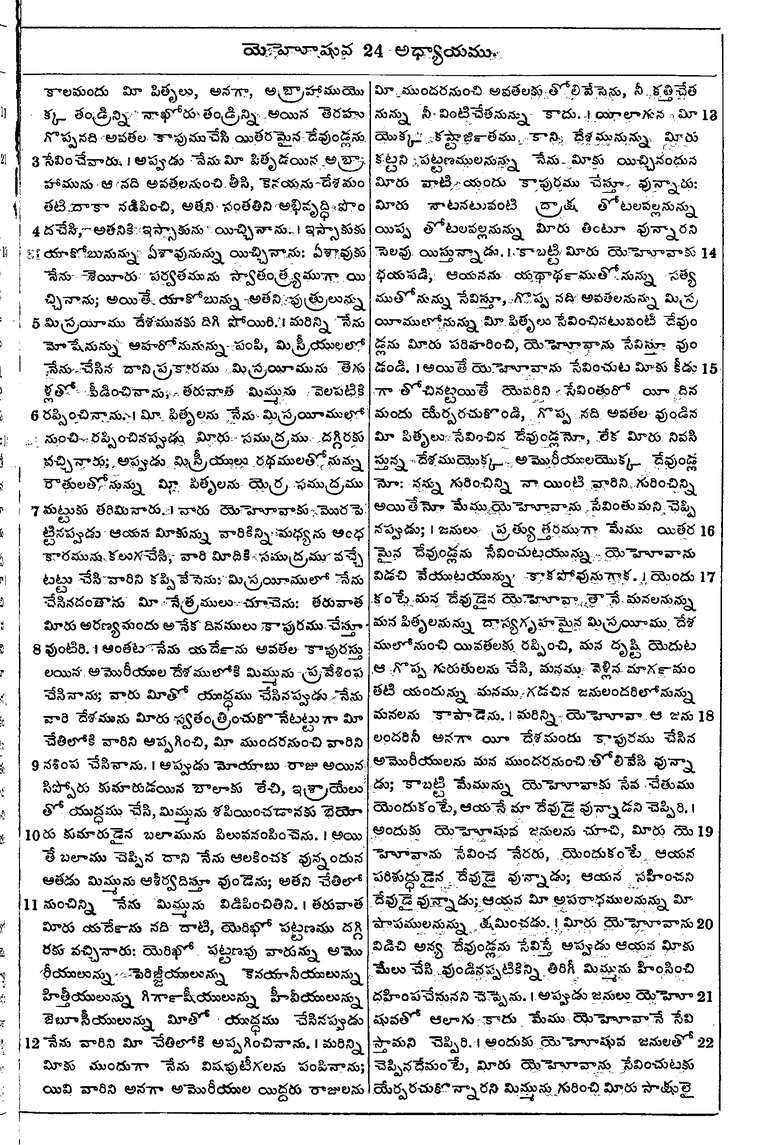 యెహోషువ 24 అధ్యాయము.
కాలమందు మీ పితృలు, అనగా, అబ్రాహాముయొ
క్క తండ్రిన్ని నాఖోరు తండ్రిన్ని అయిన తెరహు
గొప్పనది అవతల కాపుముచేసి యితరమైన దేవుండ్లను
3 సేవించేవారు. । అప్పుడు నేను మీ పితృడయిన అబ్రా
హామును ఆ నది అవతలనుంచి తీసి, కెనయను దేశమం
తటి దాకా నడిపించి, అతని సంతతిని అభివృద్ధి పొం
4 దచేసి, అతనికి ఇస్సాకును యిచ్చినాను. । ఇస్సాకుకు
యాకోబునున్ను ఏశావునున్ను యిచ్చినాను: ఏశావుకు
నేను శెయీరు పర్వతమును స్వాతంత్ర్యముగా యి
చ్చినాను; అయితే యాకోబున్ను అతని పుత్రులున్ను
5 మిస్రయీము దేశమునకు దిగి పోయిరి. । మరిన్ని నేను
మోషేనున్ను అహరోనునున్ను పంపి, మిస్రీయులలో
నేను చేసిన దాని ప్రకారము మిస్రయీమును తెగు
ళ్లతో పీడించినాను; తరువాత మిమ్మును వెలపటికి
6 రప్పించినాను. । మీ పితృలను నేను మిస్రయీములో
నుంచి రప్పించినప్పుడు మీరు సముద్రము దగ్గిరకు
వచ్చినారు; అప్పుడు మిస్రీయులు రథములతోనున్ను
రౌతులతోనున్ను మీ పితృలను యెర్ర సముద్రము
7 మట్టుకు తరిమినారు. । వారు యెహోవాకు మొర పె
ట్టినప్పుడు ఆయన మీకున్ను వారికిన్ని మధ్యను అంధ
కారమును కలుగచేసి, వారి మీదికి సముద్రము వచ్చే
టట్టు చేసి వారిని కప్పివేసెను: మిస్రయీములో నేను
చేసినదంతాను మీ నేత్రములు చూచెను: తరువాత
మీరు అరణ్యమందు అనేక దినములు కాపురము చేస్తూ
8 వుంటిరి. । అంతట నేను యర్దేను అవతల కాపురస్తు
లయిన అమోరీయుల దేశములోకి మిమ్మును ప్రవేశింప
చేసినాను; వారు మీతో యుద్ధము చేసినప్పుడు నేను
వారి దేశమును మీరు స్వతంత్రించుకొనేటట్టుగా మీ
చేతిలోకి వారిని అప్పగించి, మీ ముందరనుంచి వారిని
9 నశింప చేసినాను. । అప్పుడు మోయాబు రాజు అయిన
సిప్పోరు కుమారుడయిన బాలాకు లేచి, ఇశ్రాయేలు
తో యుద్ధము చేసి, మిమ్మును శపియించడానకు బెయో
10 రు కుమారుడైన బలామును పిలువనంపించెను. । అయి
తే బలాము చెప్పిన దాని నేను ఆలకించక వున్నందున
ఆతడు మిమ్మును ఆశీర్వదిస్తూ వుండెను; అతని చేతిలో
11 నుంచిన్ని నేను మిమ్మును విడిపించితిని. । తరువాత
మీరు యర్దేను నది దాటి, యెరిఖో పట్టణము దగ్గి
రకు వచ్చినారు: యెరిఖో పట్టణపు వారున్ను అమో
రీయులున్ను పెరిజ్జీయులున్ను కెనయానీయులున్ను
హిత్తీయులున్ను గిర్గాశీయులున్ను హీవీయులున్ను
జెబూసీయులున్ను మీతో యుద్ధము చేసినప్పుడు
12 నేను వారిని మీ చేతిలోకి అప్పగించినాను. । మరిన్ని
మీకు ముందుగా నేను విషపుటీగలను పంపినాను;
యివి వారిని అనగా అమోరీయుల యిద్దరు రాజులను
మీ ముందరనుంచి అవతలకు తోలివేసెను, నీ కత్తిచేత
నున్ను నీ వింటిచేతనున్ను కాదు. । యీలాగున మీ 13
యొక్క కష్టార్జితము కాని దేశమునున్ను మీరు
కట్టని పట్టణములనున్ను నేను మీకు యిచ్చినందున
మీరు వాటి యందు కాపురము చేస్తూ వున్నారు:
మీరు నాటనటువంటి ద్రాక్ష తోటలవల్లనున్ను
యిప్ప తోటలవల్లనున్ను మీరు తింటూ వున్నారని
సెలవు యిస్తున్నాడు. । కాబట్టి మీరు యెహోవాకు 14
భయపడి, ఆయనను యథార్థముతోనున్ను సత్య
ముతోనున్ను సేవిస్తూ, గొప్ప నది అవతలనున్ను మిస్ర
యీములోనున్ను మీ పితృలు సేవించినటువంటి దేవుం
డ్లను మీరు పరిహరించి, యెహోవాను సేవిస్తూ వుం
డండి. । అయితే యెహోవాను సేవించుట మీకు కీడు 15
గా తోచినట్టయితే యెవరిని సేవింతురో యీ దిన
మందు యేర్పరచుకొండి, గొప్ప నది అవతల వుండిన
మీ పితృలు సేవించిన దేవుండ్లనో, లేక మీరు నివసి
స్తున్న దేశముయొక్క అమోరీయులయొక్క దేవుండ్ల
నో: నన్ను గురించిన్ని నా యింటి వారిని గురించిన్ని
అయితేనో మేము యెహోవాను సేవింతుమని చెప్పి
నప్పుడు; । జనులు ప్రత్యుత్తరముగా మేము యితర 16
మైన దేవుండ్లను సేవించుటయున్ను యెహోవాను
విడచి వేయుటయున్ను కాకపోవునుగాక. । యెందు 17
కంటే మన దేవుడైన యెహోవా, తానే మనలనున్ను
మన పితృలనున్ను దాస్యగృహమైన మిస్రయీము దేశ
ములోనుంచి యివతలకు రప్పించి, మన దృష్టి యెదుట
ఆ గొప్ప గురుతులను చేసి, మనము వెళ్లిన మార్గమం
తటి యందున్ను మనము గడచిన జనులందరిలోనున్ను
మనలను కాపాడెను. । మరిన్ని యెహోవా ఆ జను 18
లందరినీ అనగా యీ దేశమందు కాపురము చేసిన
అమోరీయులను మన ముందరనుంచి తోలివేసి వున్నా
డు; కాబట్టి మేమున్ను యెహోవాకు సేవ చేతుము
యెందుకంటే, ఆయనే మా దేవుడై వున్నాడని చెప్పిరి. ।
అందుకు యెహోషువ జనులను చూచి, మీరు యె 19
హోవాను సేవించ నేరరు, యెందుకంటే, ఆయన
పరిశుద్ధుడైన దేవుడై వున్నాడు; ఆయన సహించని
దేవుడై వున్నాడు; ఆయన మీ అపరాధములనున్ను మీ
పాపములనున్ను క్షమించడు. । మీరు యెహోవాను 20
విడిచి అన్య దేవుండ్లను సేవిస్తే అప్పుడు ఆయన మీకు
మేలు చేసి వుండినప్పటికిన్ని తిరిగీ మిమ్మును హింసించి
దహింపచేనునని చెప్పెను. । అప్పుడు జనులు యెహో 21
షువతో ఆలాగు కాదు మేము యెహోవానే సేవి
స్తామని చెప్పిరి. । అందుకు యెహోషువ జనులతో 22
చెప్పినదేమంటే, మీరు యెహోవాను సేవించుటకు
యేర్పరచుకొన్నారని మిమ్మును గురించి మీరు సాక్షులై